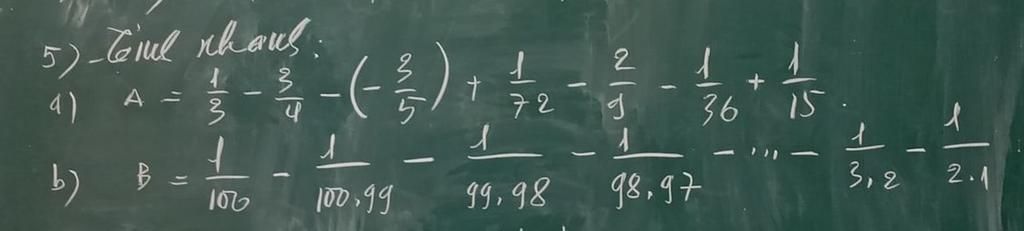 5) - Tính nhanh:
a) A = 1/3 - 3/4 - (-3/5) + 1/72 - 2/9 - 1/36 + 1/15.
b) B = 1/100 - 1/100.99 - 1/99.98 - 1/98.97 - ... - 1/3.2 - 1/2.1